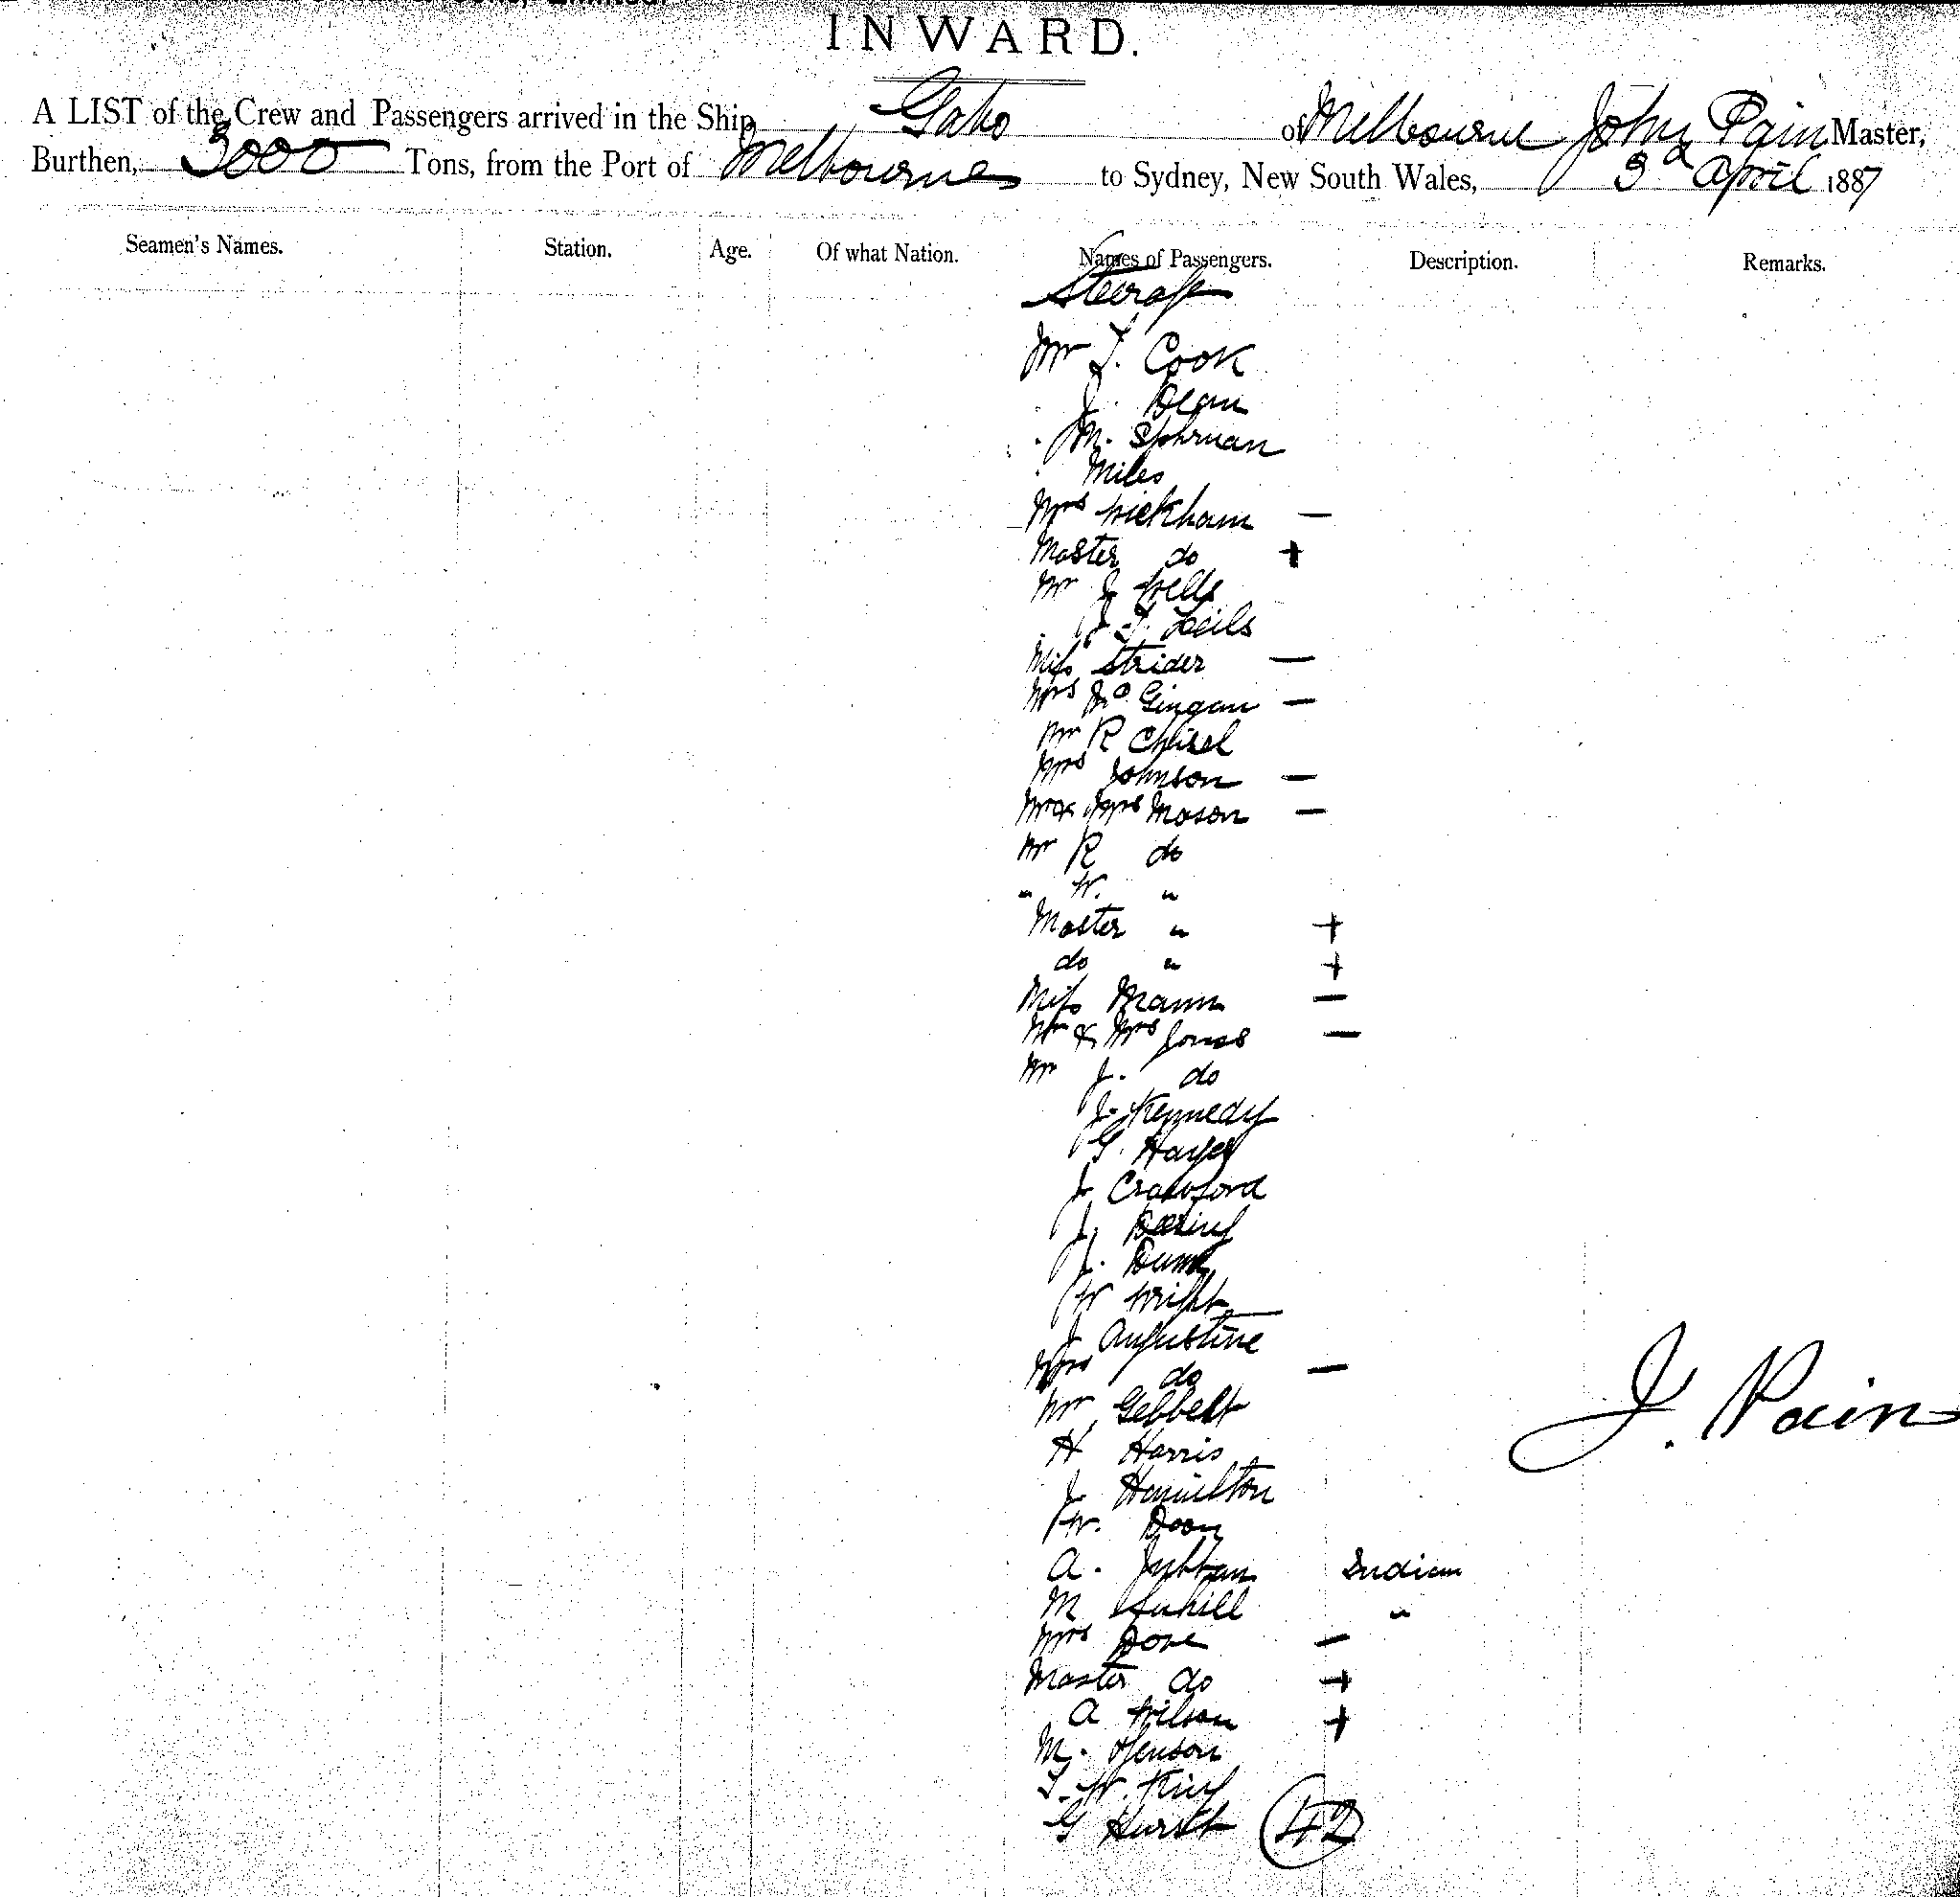 INWARD.
A LIST of the Crew and Passengers arrived in the Ship Gabo of Melbourne John Pain Master,
Burthen, 3000 Tons, from the Port of Melbourne to Sydney, New South Wales, 3d April 1887
Seamen's Names. Station. Age. Of what Nation. Names of Passengers. Description. Remarks.
Steerage
Mr T. Cook
J. Dean
M.
Miles
Mrs Wickham —
Master do +
Mr J Wells
J. T.
Miss Strider —
Mrs McGingan —
Mr R
Mrs Johnson —
Mr & Mrs Mason —
Mr R do
" W. "
Master " +
do " +
Miss Mann —
Mr & Mrs Jones —
Mr J. do
J. Kennedy
G. Hayes
J Crawford
J.
J. Dunn
W Wright
J Augustine
Mrs do —
Mr Gebbelt
H Harris
J Hamilton
W. Doon
A. Indian
M "
Mrs Dove —
Master do +
A Wilson +
M. Henson
T. W. King
G Hurst 42
J. Pain